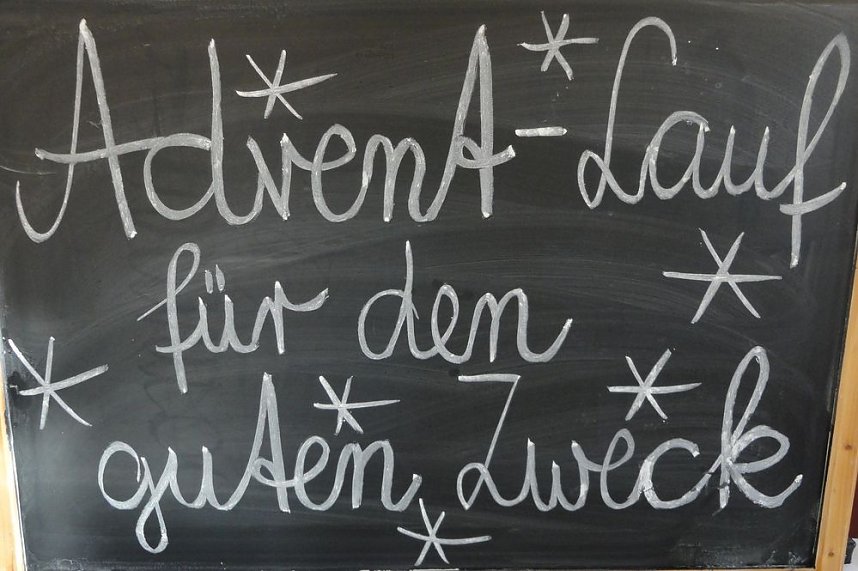 Advent-Lauf
für den
guten Zweck